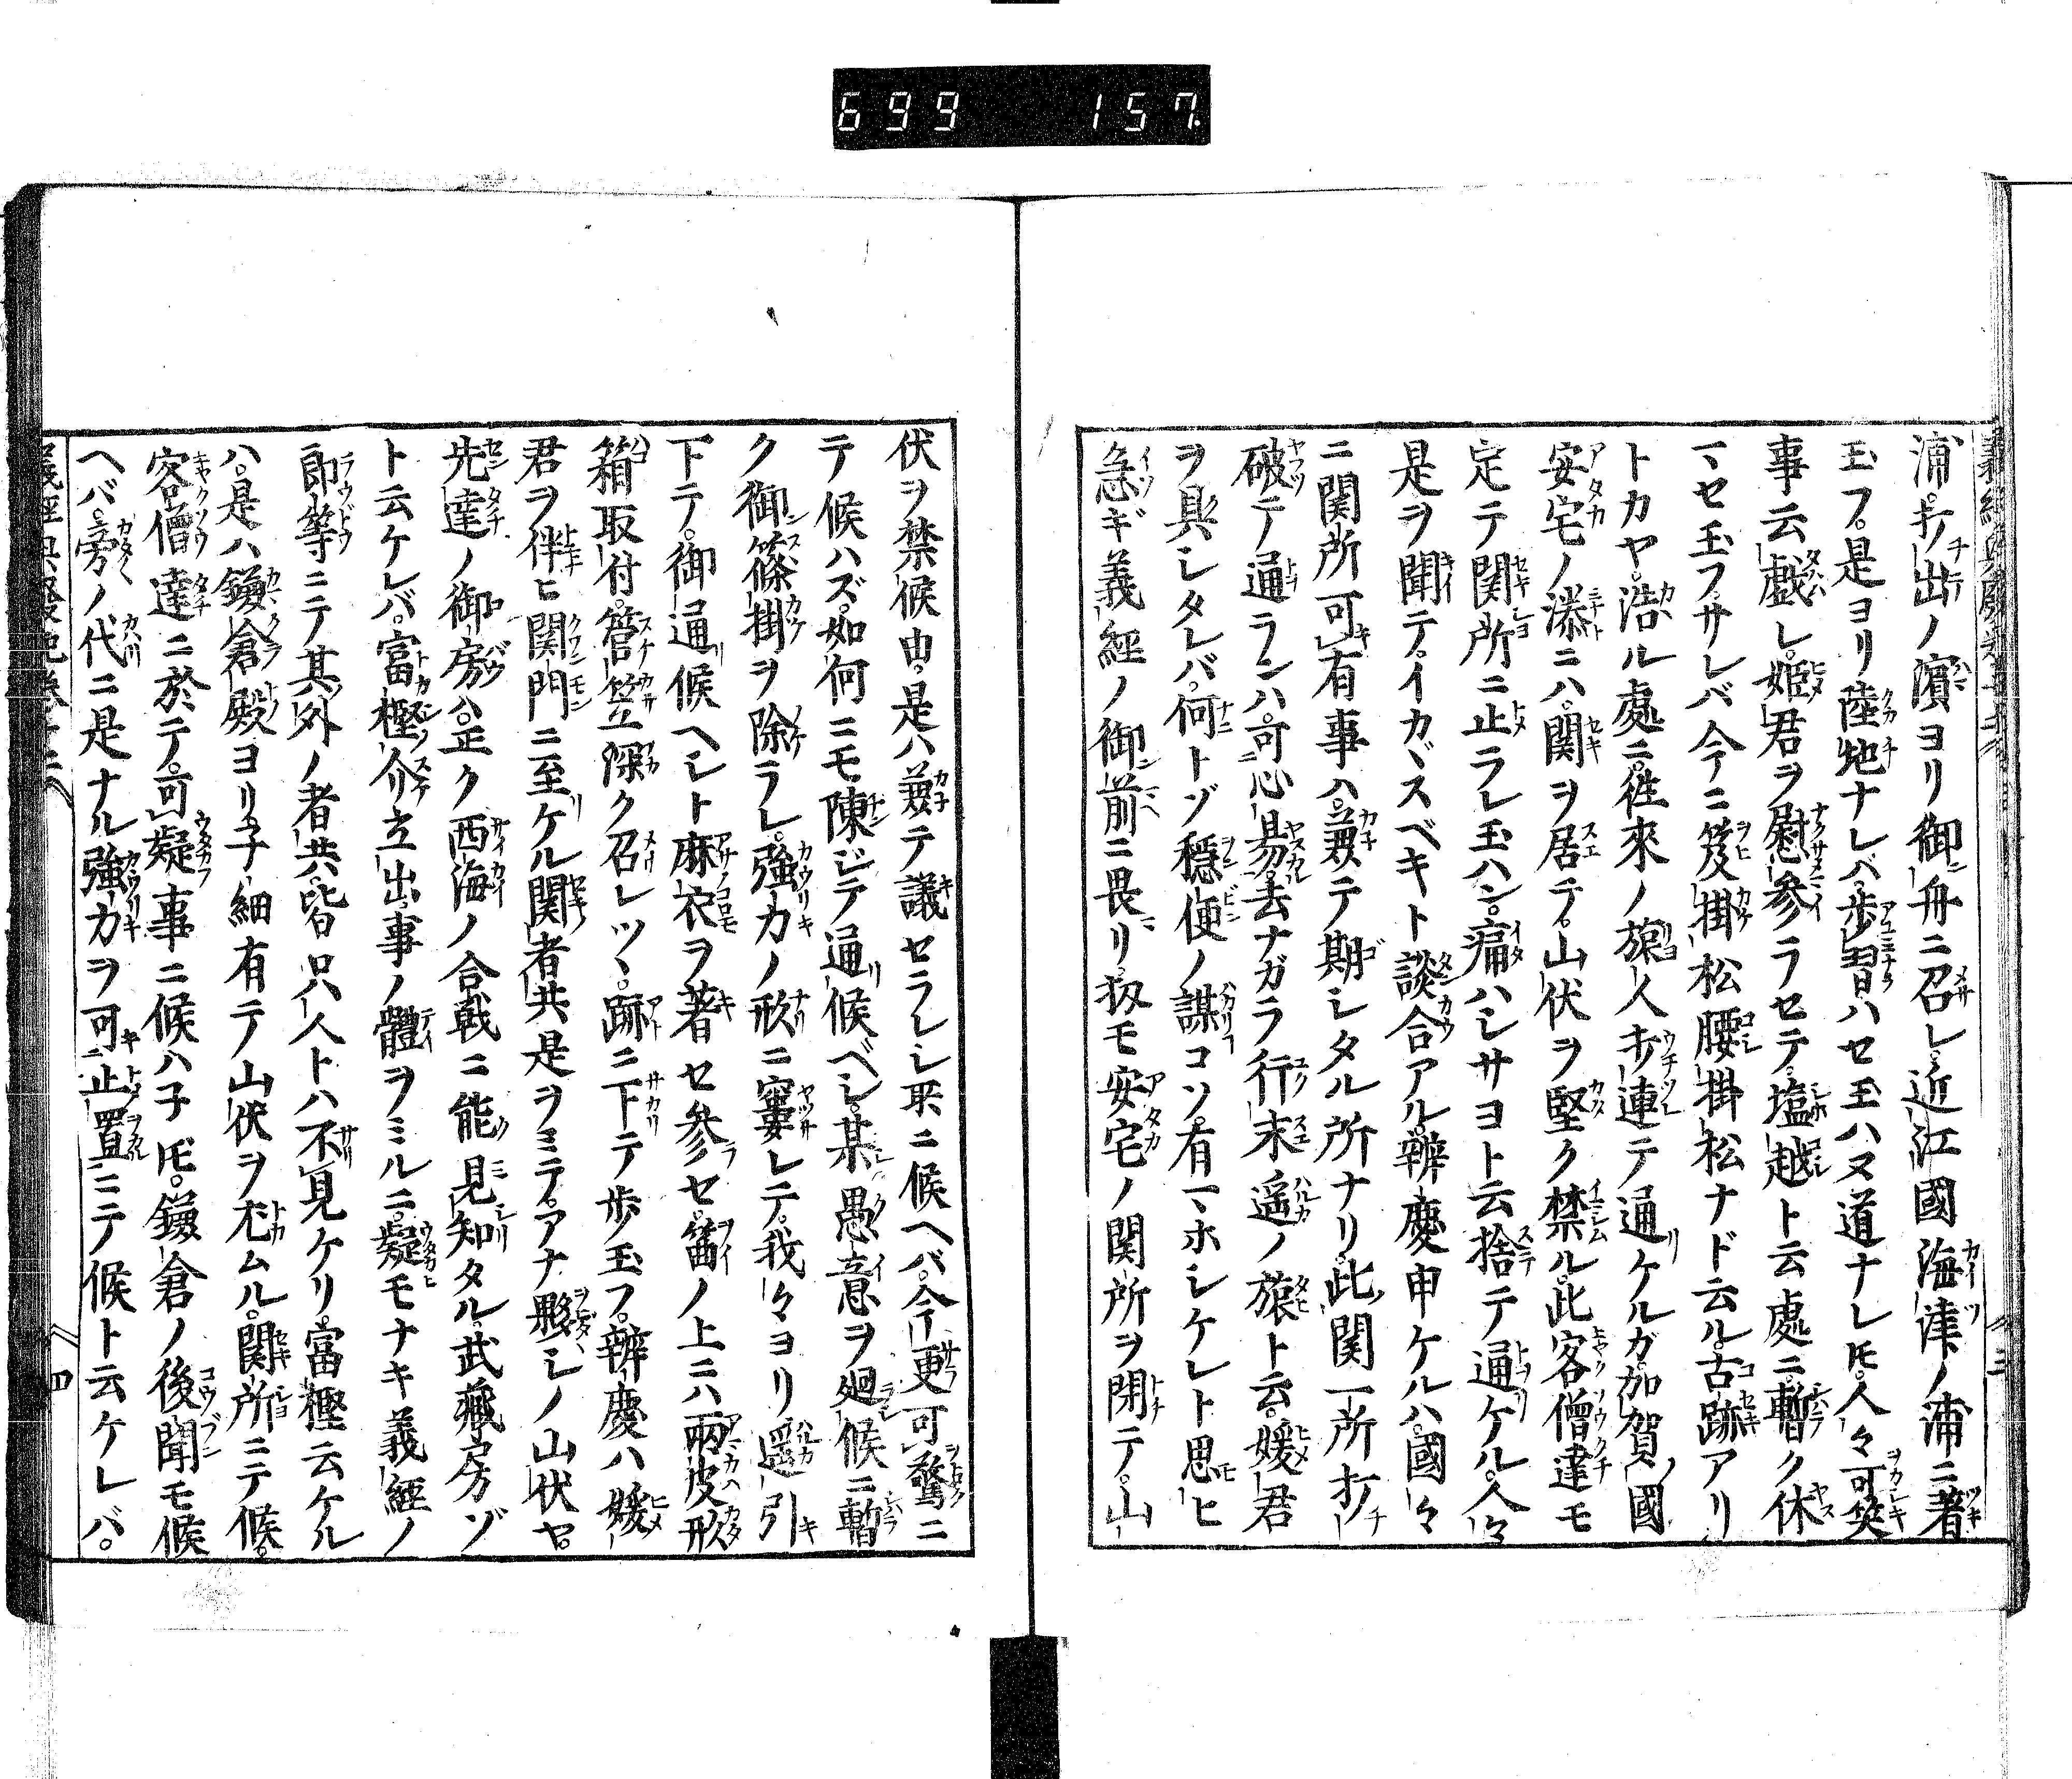 699 157.
浦。打出ノ濱ヨリ御舟ニ召レ。近江國海津ノ浦ニ著
玉フ。是ヨリ陸地ナレバ。歩習ハセ玉ハヌ道ナレ𪜈。人々可笑
事云戯レ。姫君ヲ慰参ラセテ。塩越ト云處ニ暫ク休
マセ玉フ。サレバ今ニ笈掛松腰掛松ナド云ル。古跡アリ
トカヤ。浩ル處ニ。徃來ノ旅人打連テ通ケルガ。加賀國
安宅ノ湊ニハ。関ヲ居テ。山伏ヲ堅ク禁ル。此客僧達モ
定テ関所ニ止ラレ玉ハン。痛ハシサヨト云捨テ通ケル。人々
是ヲ聞テ。イカヾスベキト談合アル。辨慶申ケルハ。國々
ニ関所可有事ハ。兼テ期シタル所ナリ。此関一所打
破テ通ランハ。可心易。去ナガラ行末遥ノ旅ト云。媛君
ヲ具シタレバ。何トゾ穏便ノ謀コソ。有マホシケレト思ヒ
急ギ義經ノ御前ニ畏リ。扨モ安宅ノ関所ヲ閉テ。山
伏ヲ禁候由。是ハ兼テ議セラレシ叓ニ候ヘバ。今更可驚ニ
テ候ハズ。如何ニモ陳ジテ通候ベシ。某愚意ヲ廻候ニ。暫
ク御篠掛ヲ除ラレ。強力ノ形ニ窶レテ。我々ヨリ遥引
下テ。御通候ヘシト。麻衣ヲ著セ参セ。笈ノ上ニハ兩皮形
箱取付。菅笠深ク召レツヽ。跡ニ下テ歩ノ玉フ。辨慶ハ媛
君ヲ伴ヒ関門ニ至ケル。関者共是ヲミテ。アナ夥シノ山伏ヤ。
先達ノ御房ハ。正ク西海ノ合戦ニ能見知タル。武藏房ゾ
ト云ケレバ。富樫介立出。事ノ體ヲミルニ。疑モナキ義經ノ
郎等ニテ。其外ノ者共。皆只人トハ不見ケリ。富樫云ケル
ハ。是ハ鎌倉殿ヨリ子細有テ山伏ヲ尤ムル。関所ニテ候。
客僧達ニ於テ。可疑事ニ候ハ子𪜈。鎌倉ノ後聞モ候
ヘバ。旁ノ代ニ是ナル強力ヲ可止置ニテ候ト云ケレバ。
四